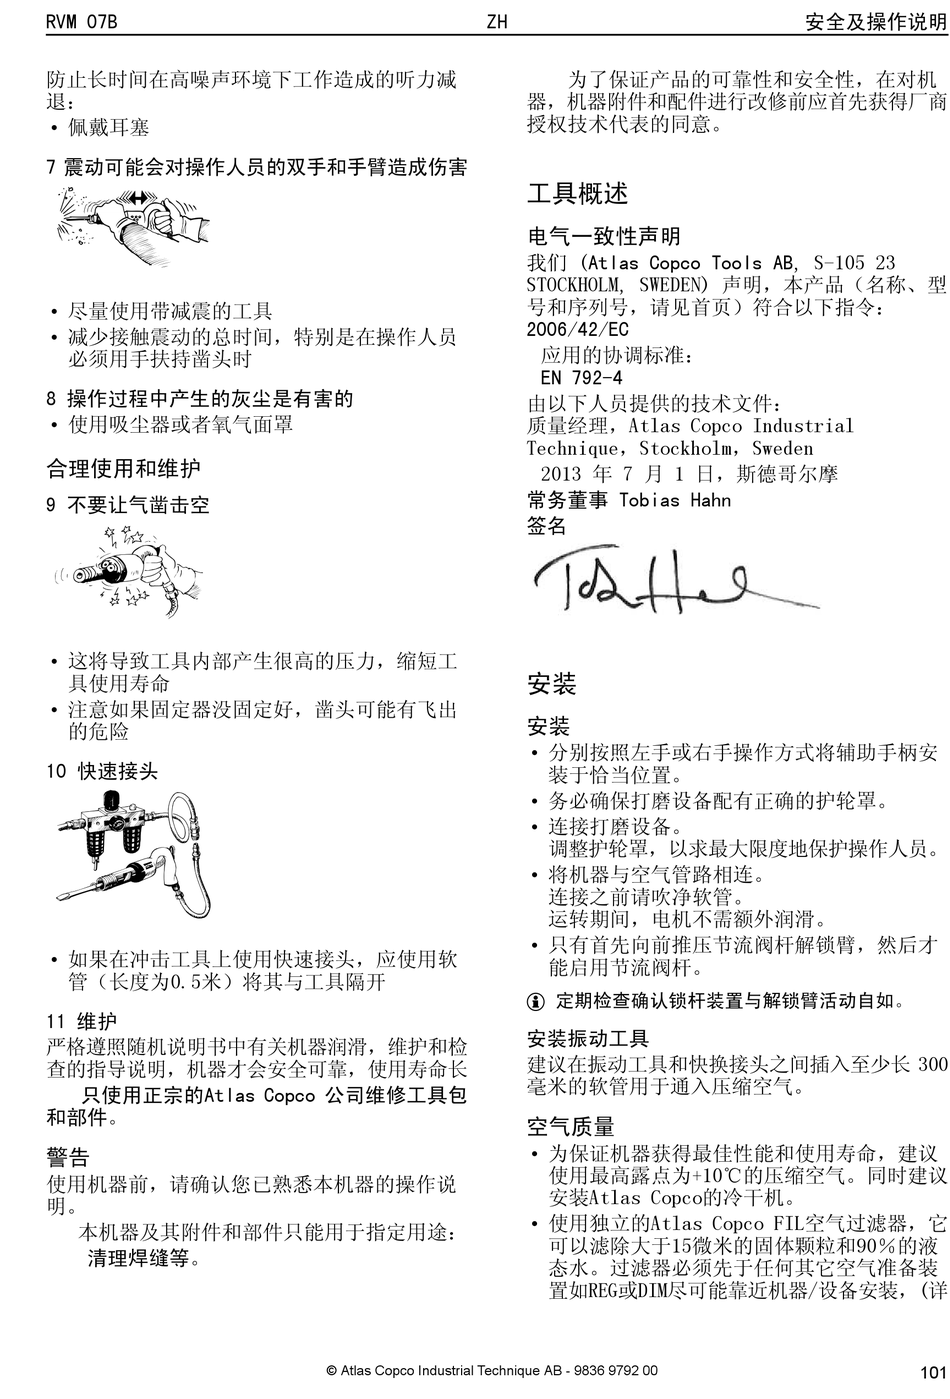 RVM 07B
ZH
安全及操作说明
防止长时间在高噪声环境下工作造成的听力减
退：
• 佩戴耳塞
7 震动可能会对操作人员的双手和手臂造成伤害
• 尽量使用带减震的工具
• 减少接触震动的总时间，特别是在操作人员
必须用手扶持凿头时
8 操作过程中产生的灰尘是有害的
• 使用吸尘器或者氧气面罩
合理使用和维护
9 不要让气凿击空
• 这将导致工具内部产生很高的压力，缩短工
具使用寿命
• 注意如果固定器没固定好，凿头可能有飞出
的危险
10 快速接头
• 如果在冲击工具上使用快速接头，应使用软
管（长度为0.5米）将其与工具隔开
11 维护
严格遵照随机说明书中有关机器润滑，维护和检
查的指导说明，机器才会安全可靠，使用寿命长
只使用正宗的Atlas Copco 公司维修工具包
和部件。
警告
使用机器前，请确认您已熟悉本机器的操作说
明。
本机器及其附件和部件只能用于指定用途：
清理焊缝等。
为了保证产品的可靠性和安全性，在对机
器，机器附件和配件进行改修前应首先获得厂商
授权技术代表的同意。
工具概述
电气一致性声明
我们 (Atlas Copco Tools AB, S-105 23
STOCKHOLM, SWEDEN) 声明，本产品（名称、型
号和序列号，请见首页）符合以下指令：
2006/42/EC
应用的协调标准：
EN 792-4
由以下人员提供的技术文件：
质量经理，Atlas Copco Industrial
Technique，Stockholm，Sweden
2013 年 7 月 1 日，斯德哥尔摩
常务董事 Tobias Hahn
签名
安装
安装
• 分别按照左手或右手操作方式将辅助手柄安
装于恰当位置。
• 务必确保打磨设备配有正确的护轮罩。
• 连接打磨设备。
调整护轮罩，以求最大限度地保护操作人员。
• 将机器与空气管路相连。
连接之前请吹净软管。
运转期间，电机不需额外润滑。
• 只有首先向前推压节流阀杆解锁臂，然后才
能启用节流阀杆。
定期检查确认锁杆装置与解锁臂活动自如。
安装振动工具
建议在振动工具和快换接头之间插入至少长 300
毫米的软管用于通入压缩空气。
空气质量
• 为保证机器获得最佳性能和使用寿命，建议
使用最高露点为+10℃的压缩空气。同时建议
安装Atlas Copco的冷干机。
• 使用独立的Atlas Copco FIL空气过滤器，它
可以滤除大于15微米的固体颗粒和90%的液
态水。过滤器必须先于任何其它空气准备装
置如REG或DIM尽可能靠近机器/设备安装，(详
© Atlas Copco Industrial Technique AB - 9836 9792 00
101